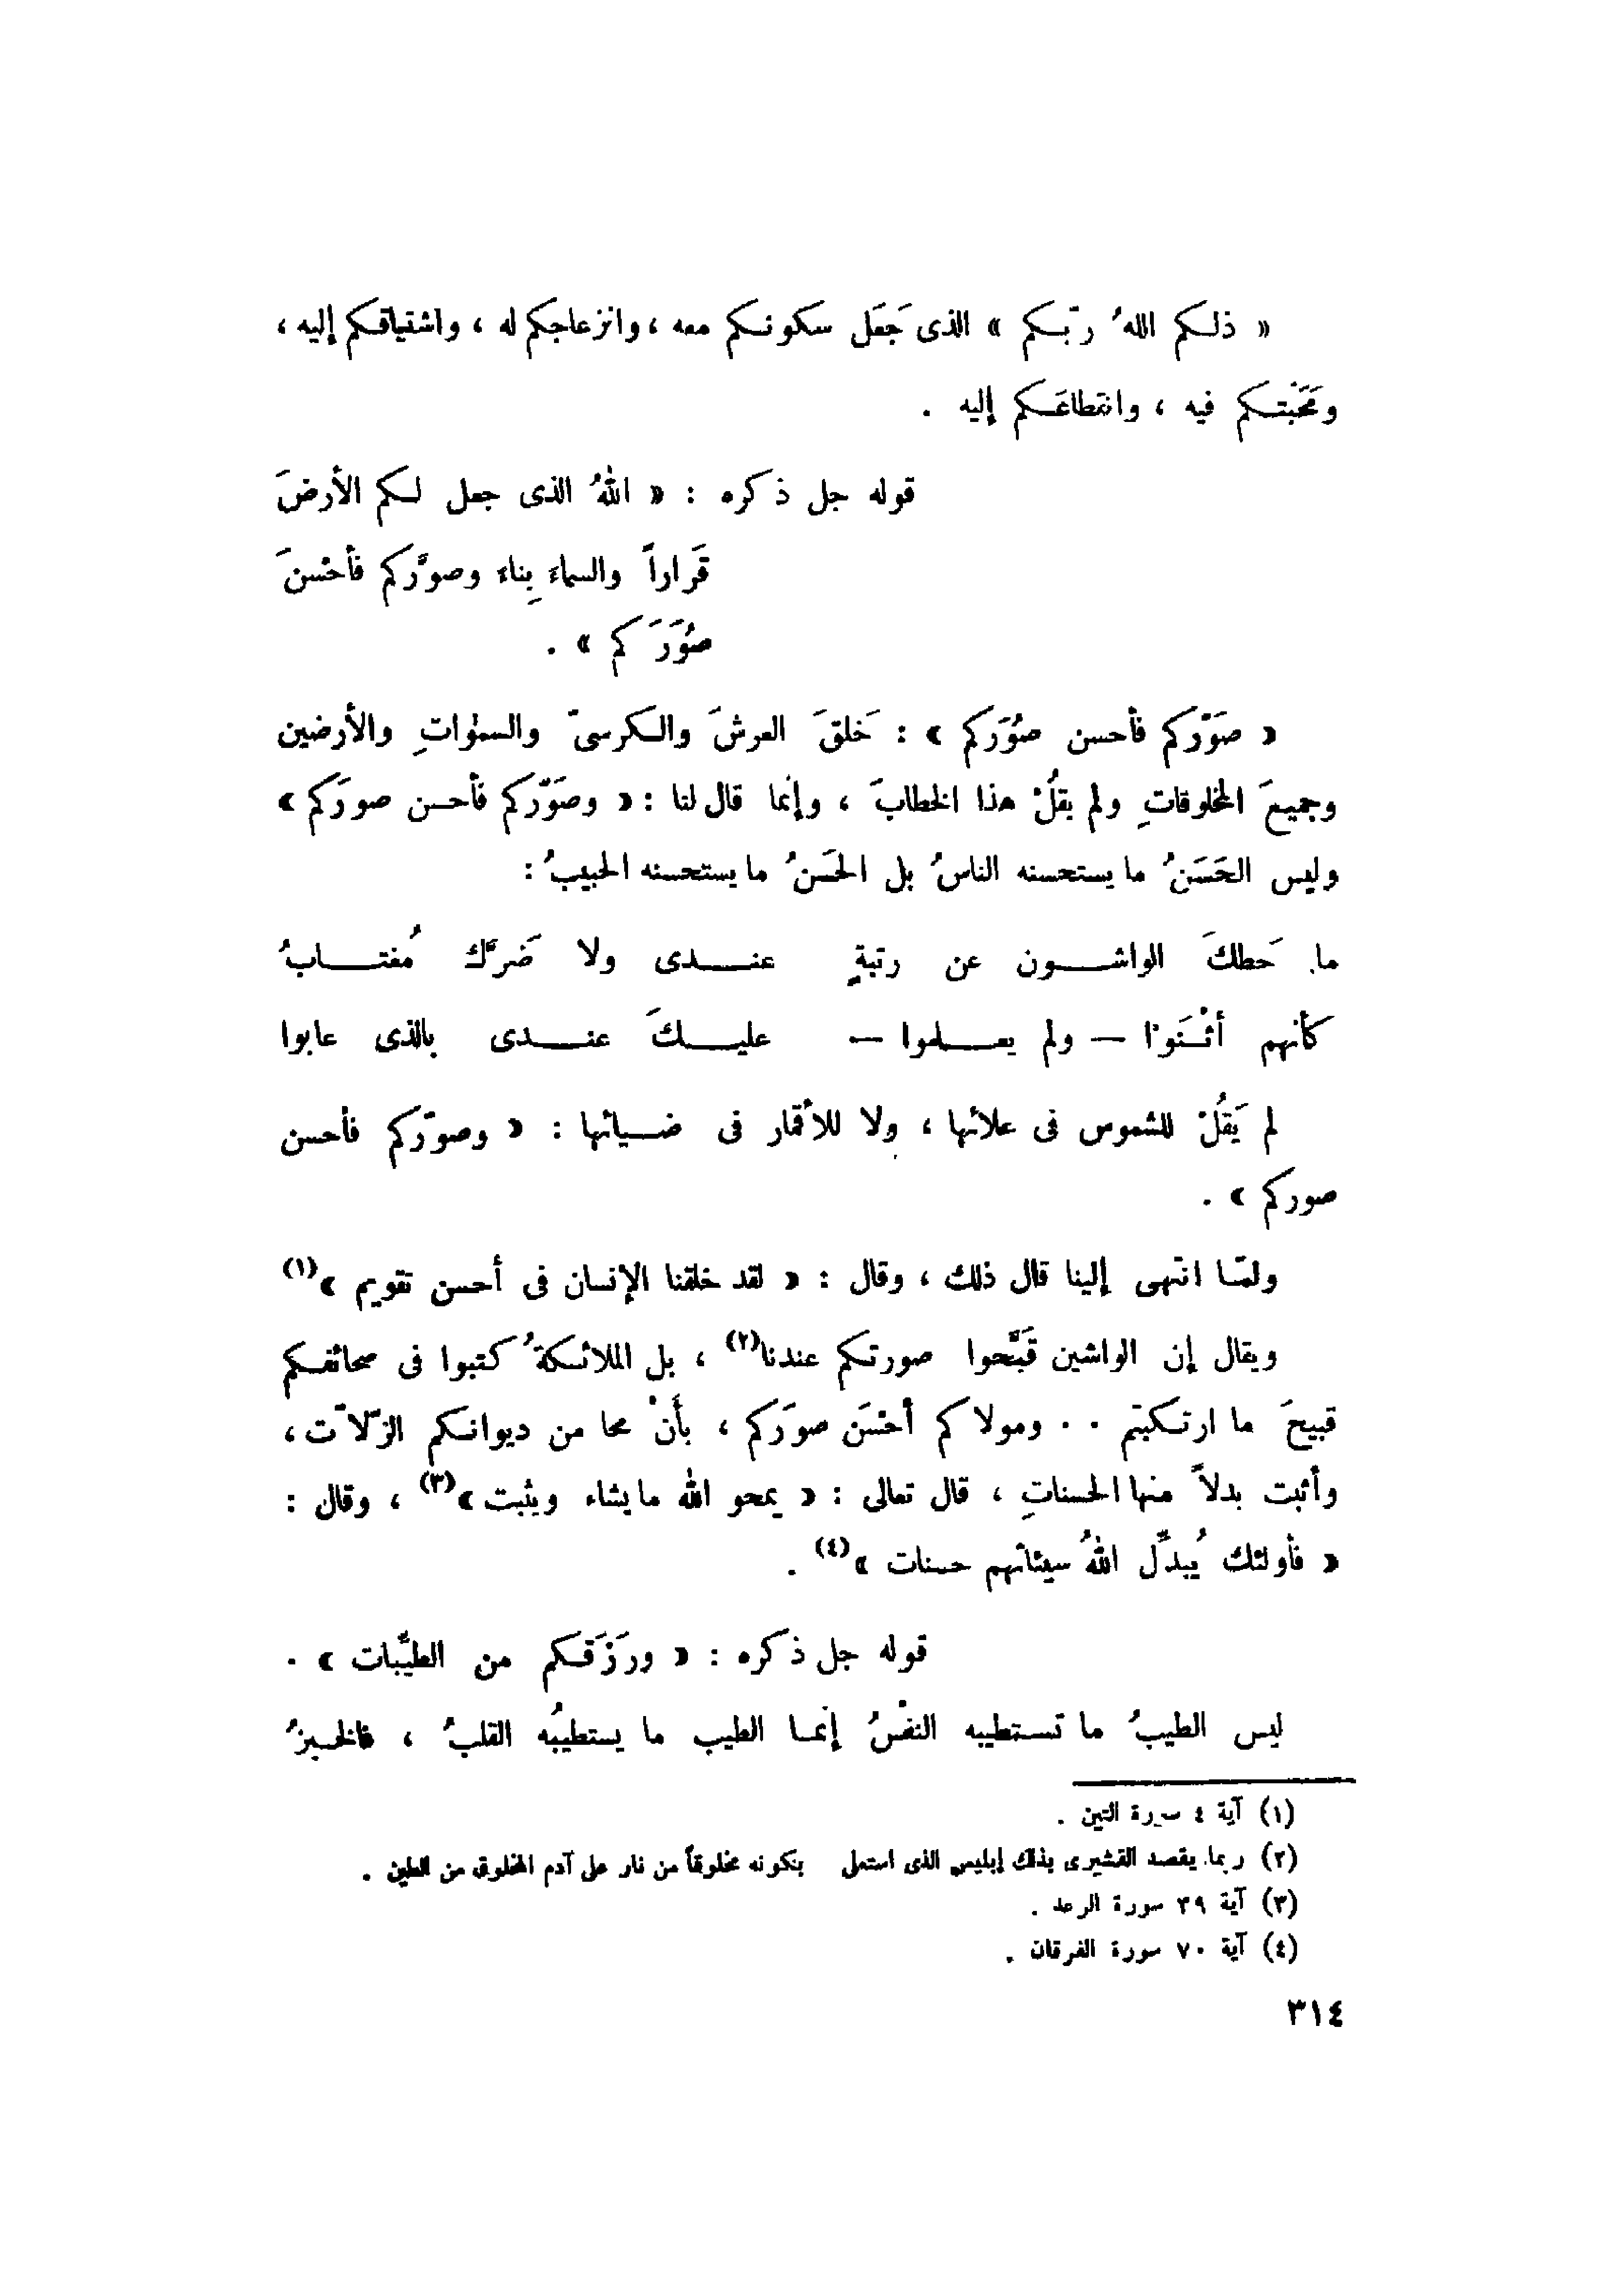 « ذلكم اللهُ ربّكم » الذى جَعَل سكونكم معه ، وانزعاجكم له ، واشتياقكم إليه ،
ومَحَبْتكم فيه ، وانقطاعَكم إليه .
قوله جل ذكره : « اللهُ الذى جعل لكم الأرضَ
قَراراً والسماءَ بِناءً وصوَّركم فأحْسنَ
صُوَرَكم » .
« صَوّركم فأحسن صُوَركم » : خَلقَ العرشَ والكرسىّ والسمٰواتِ والأرضين
وجميعَ المخلوقاتِ ولم يقُلْ هذا الخطابَ ، وإنما قال لنا : « وصَوّركم فأحسن صورَكم »
وليس الحَسَنُ ما يستحسنه الناسُ بل الحَسَنُ ما يستحسنه الحبيبُ :
ما حَطكَ الواشون عن رتبةٍ عندى ولا ضَرَّك مُغتابُ
كأنهم أثْنَوْا — ولم يعلموا — عليكَ عندى بالذى عابوا
لم يَقُلْ للشموس فى علائها ، ولا للأقمار فى ضيائها : « وصوّركم فأحسن
صوركم » .
ولمّا انتهى إلينا قال ذلك ، وقال : « لقد خلقنا الإنسان فى أحسن تقويم »(١)
ويقال إن الواشين قَبَّحوا صورتكم عندنا(٢) ، بل الملائكةُ كتبوا فى صحائفكم
قبيحَ ما ارتكبتم . . ومولاكم أحْسَن صورَكم ، بأنْ محا من ديوانكم الزّلاّت ،
وأثبت بدلاً منها الحسناتِ ، قال تعالى : « يمحو الله ما يشاء ويثبت »(٣) ، وقال :
« فأولئك يُبدِّل اللهُ سيئاتهم حسنات »(٤) .
قوله جل ذكره : « ورَزَقكم من الطيِّبات » .
ليس الطيبُ ما تستطيبه النفْسُ إنما الطيب ما يستطيبُه القلبُ ، فالخبزُ
(١) آية ٤ سورة التين .
(٢) ربما يقصد القشيرى بذلك إبليس الذى استعلى بكونه مخلوقاً من نار على آدم المخلوق من الطين .
(٣) آية ٣٩ سورة الرعد .
(٤) آية ٧٠ سورة الفرقان .
٣١٤